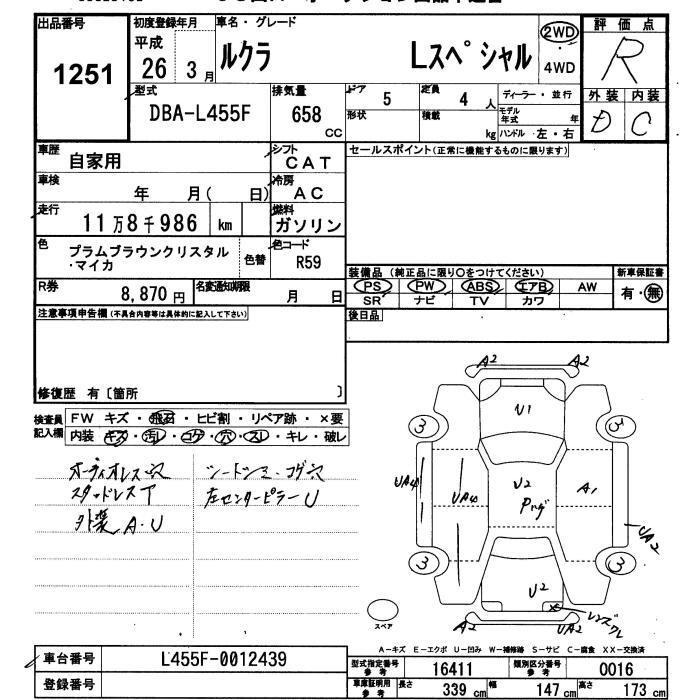 出品番号 初度登録年月 車名・グレード 評価点
1251 平成 26 3月 ルクラ Lスペシャル 2WD・4WD R
外装 内装
D C
型式 排気量 ドア 定員 ディーラー・並行
DBA-L455F 658 CC 5 4人
形状 積載 kg モデル年式 年 ハンドル 左・右
車歴 自家用 シフト CAT セールスポイント(正常に機能するものに限ります)
車検 年 月( 日) 冷房 AC
走行 11万8千986 km 燃料 ガソリン
色 プラムブラウンクリスタル・マイカ 色替 色コード R59
装備品(純正品に限り○をつけてください) 新車保証書
PS PW ABS エアB AW 有・無
SR ナビ TV カワ
R券 8,870円 名変通知期限 月 日
後日品
注意事項申告欄(不具合内容等は具体的に記入して下さい)
修復歴 有〔箇所 〕
検査員記入欄 FW キズ・飛石・ヒビ割・リペア跡・×要
内装 キズ・汚レ・コゲ・穴・スレ・キレ・破レ
オーディオレス穴 シートシミ・コゲ穴
スタッドレスT 左センターピラーU
外装A・U
A2 A2
U1
3 3
UA4 UA4 U2 Pハゲ A1
UA2
3 3
U2
レンズワレ
A2 UA2
スペア
A-キズ E-エクボ U-凹み W-補修跡 S-サビ C-腐食 XX-交換済
車台番号 L455F-0012439 型式指定番号 参考 16411 類別区分番号 参考 0016
登録番号 車庫証明用 参考 長さ 339 cm 幅 147 cm 高さ 173 cm